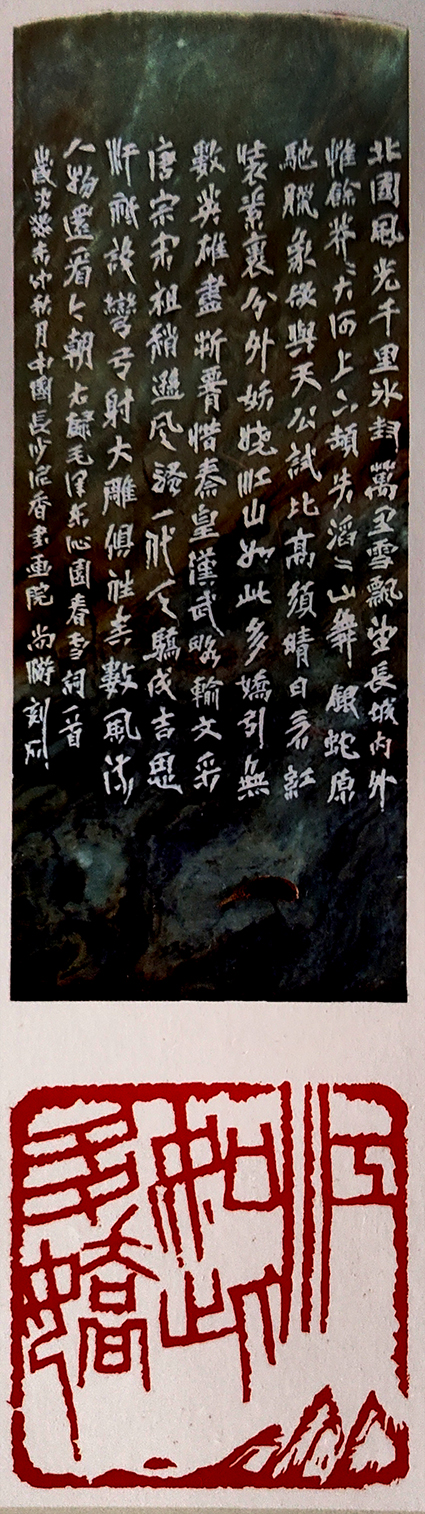 北國風光千里冰封萬里雪飄望長城内外
惟餘莽〻大河上下頓失滔〻山舞銀蛇原
馳臘象欲與天公試比高須晴日看紅
裝素裹分外妖嬈江山如此多嬌引無
數英雄盡折腰惜秦皇漢武略輸文采
唐宗宋祖稍遜風騷一代天驕成吉思
汗祇識彎弓射大雕俱往矣數風流
人物還看今朝 右錄毛澤東沁園春雪詞一首
歲次癸未仲秋月中國長沙香書画院 尚刻
江
如此
多嬌